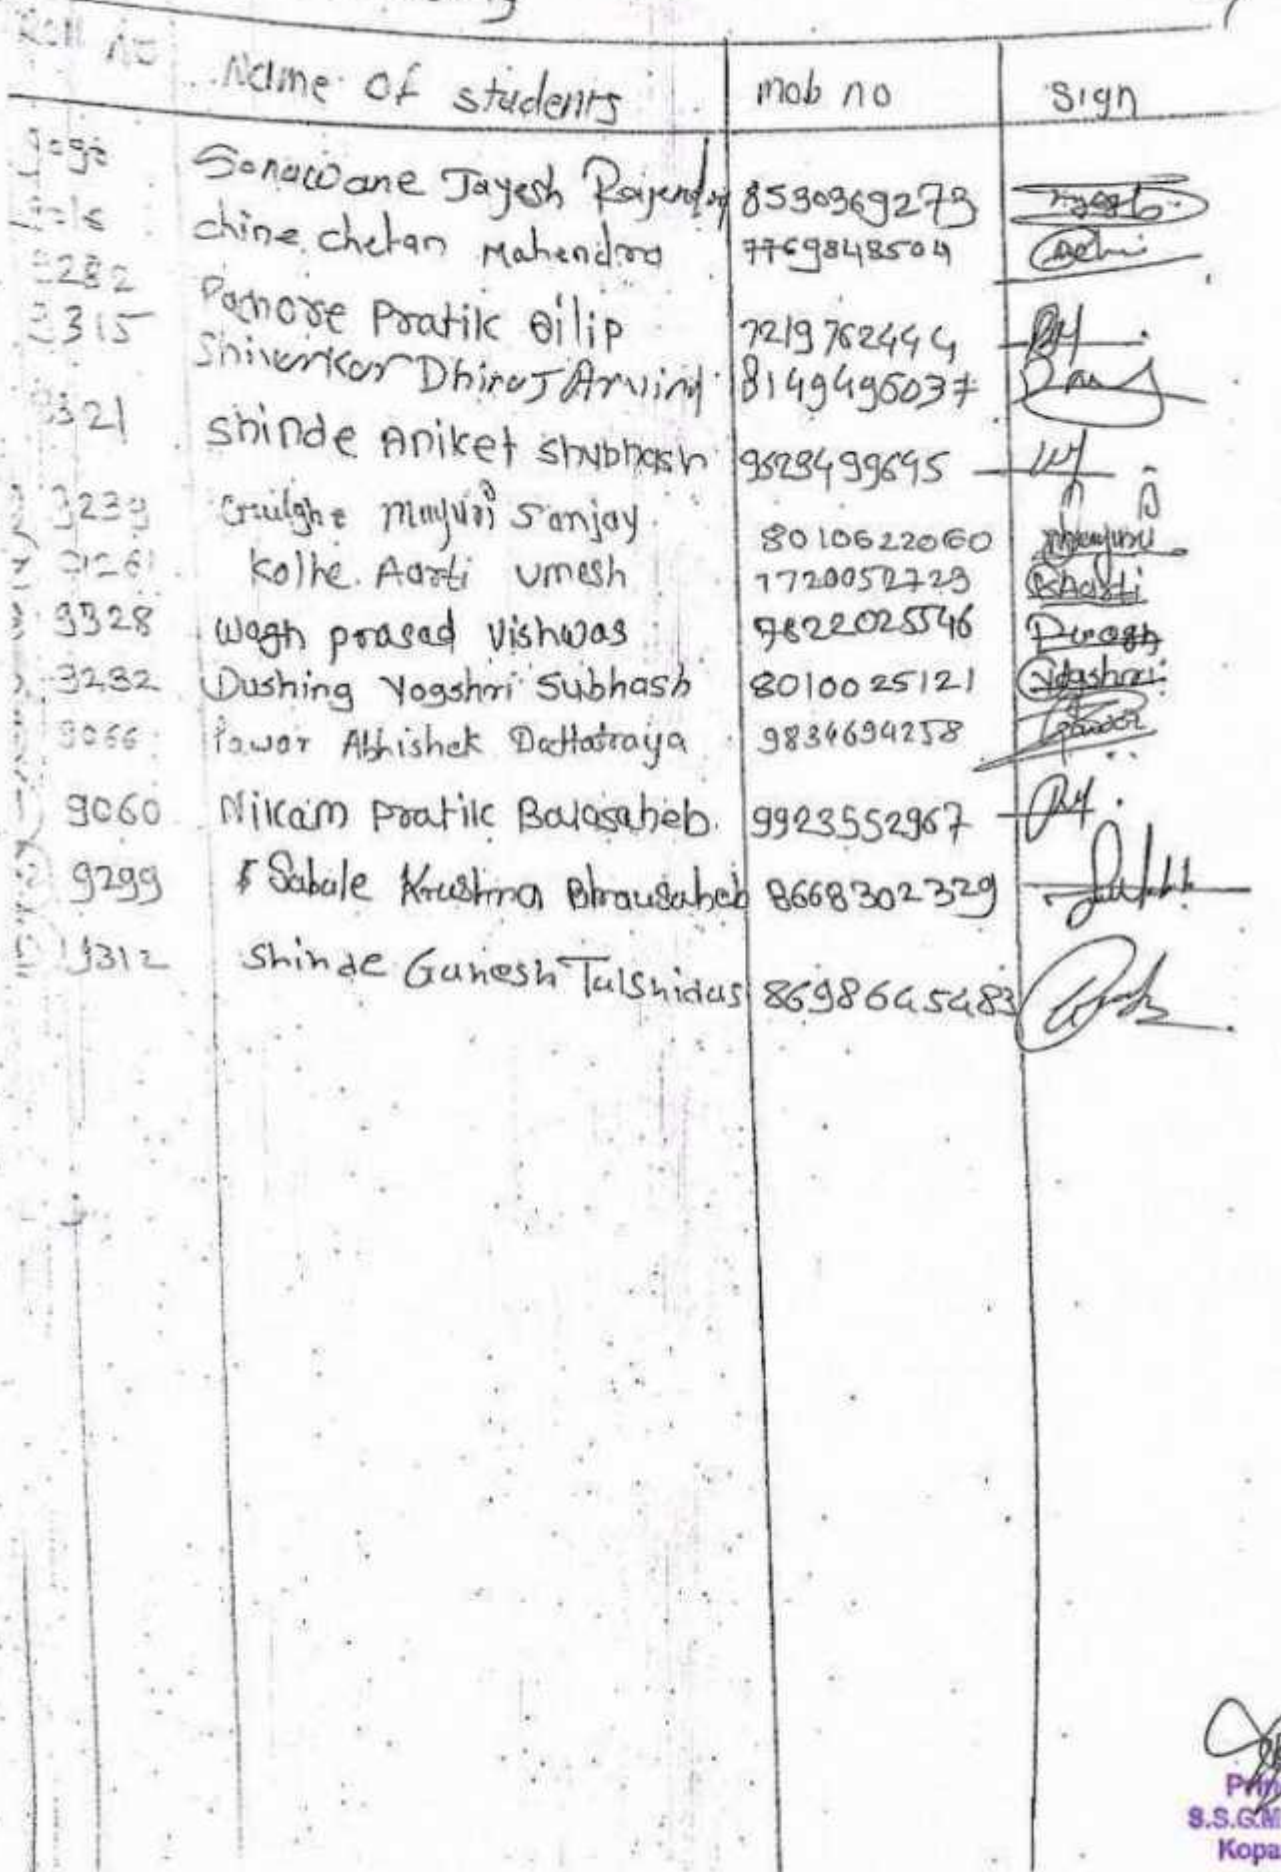 Roll no Name of students mob no Sign
Sonawane Jayesh Rajendra 8530369273
chine chetan Mahendra 7769848504
3282 Pratik Dilip 7219762444
3315 Shiverkar Dhiraj Arvind 8149496037
321 shinde Aniket shubhash 9623499645
3239 mayuri Sanjay 8010622060
Kolhe Aarti umesh 7720052723 KAarti
9328 wagh prasad vishwas 9822025546 Pwagh
3232 Dushing Yogshri Subhash 8010025121 Yogshri
9066 Pawar Abhishek Dattatraya 9834694258 Pawar
9060 Nikam pratik Balasaheb. 9923552967
9299 Sabale Krushna Bhausaheb 8668302329
9312 Shinde Ganesh Tulshidas 8698645483
S.S.G.M
Kopa